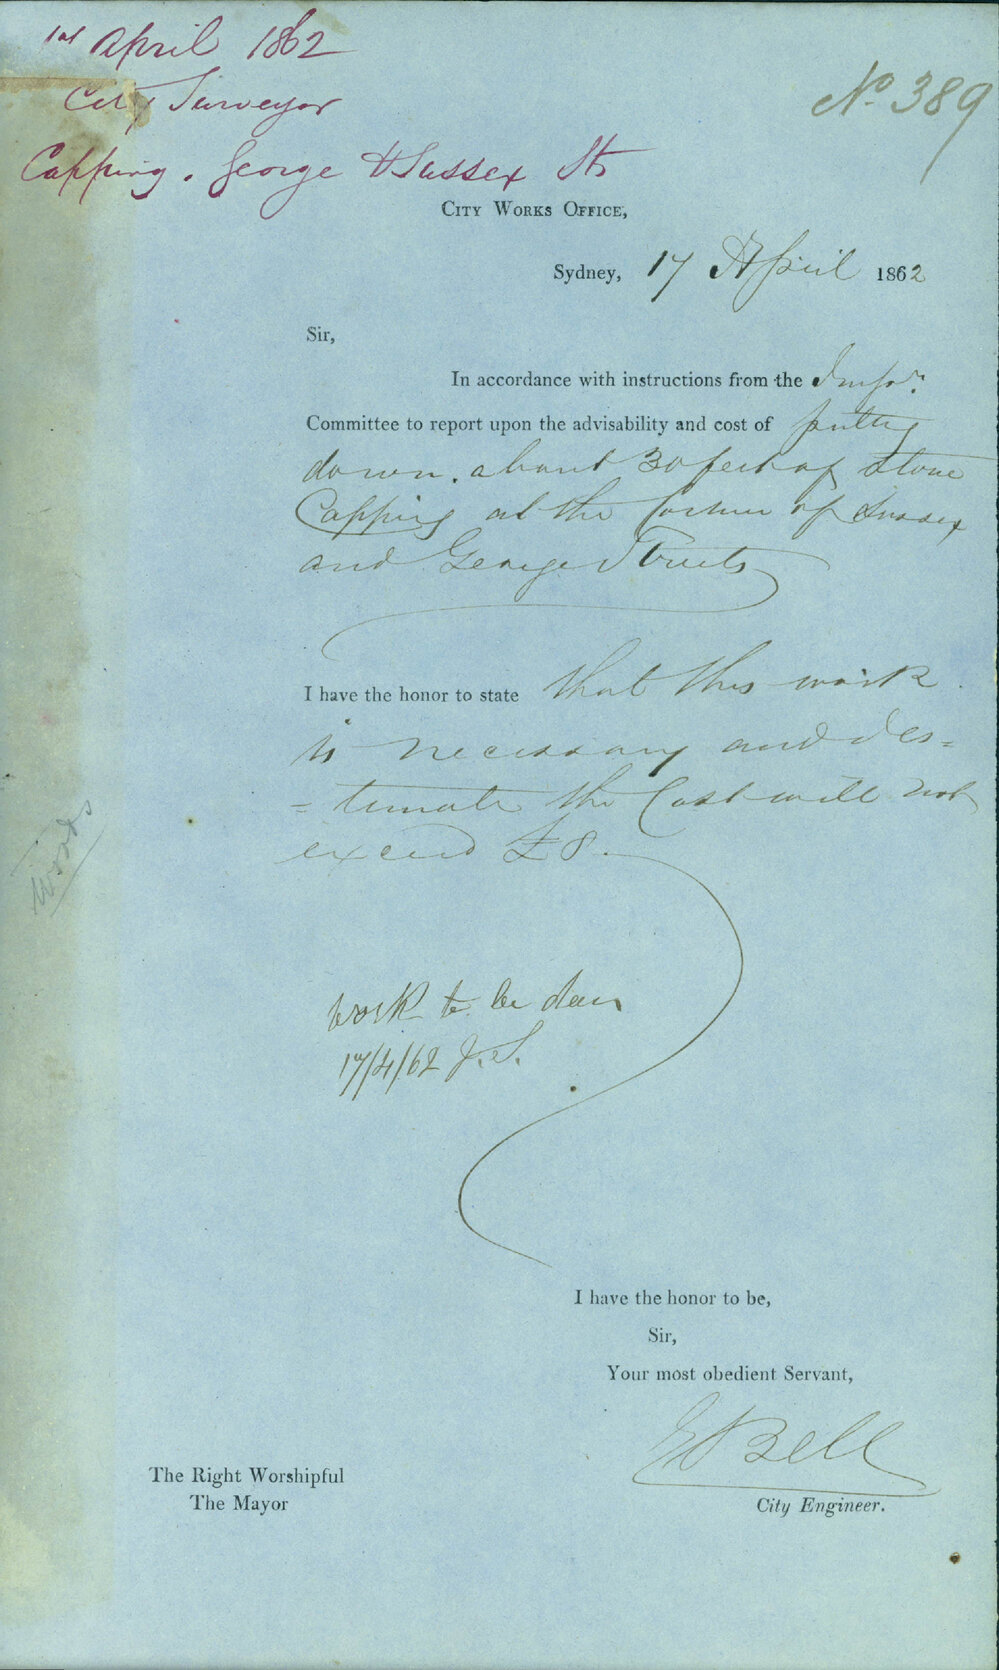 1st April 1862
City Surveyor
Capping. George & Sussex Sts
No. 389
CITY WORKS OFFICE,
Sydney, 17 April 1862
Sir,
In accordance with instructions from the Impr.
Committee to report upon the advisability and cost of putting
down. about 30 feet of Stone
Capping at the Corner of Sussex
and George Streets
I have the honor to state that this work
is necessary and I es=
=timate the Cost will not
exceed £8.
Woods
Work to be done
17/4/62 J.S.
I have the honor to be,
Sir,
Your most obedient Servant,
E Bell
City Engineer.
The Right Worshipful
The Mayor